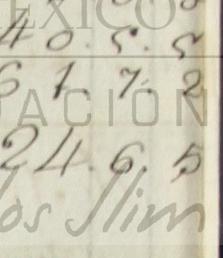 MEXICO
4 0. 5. 5
6 1. 7. 2
TACION
24. 6. 5
los Slim